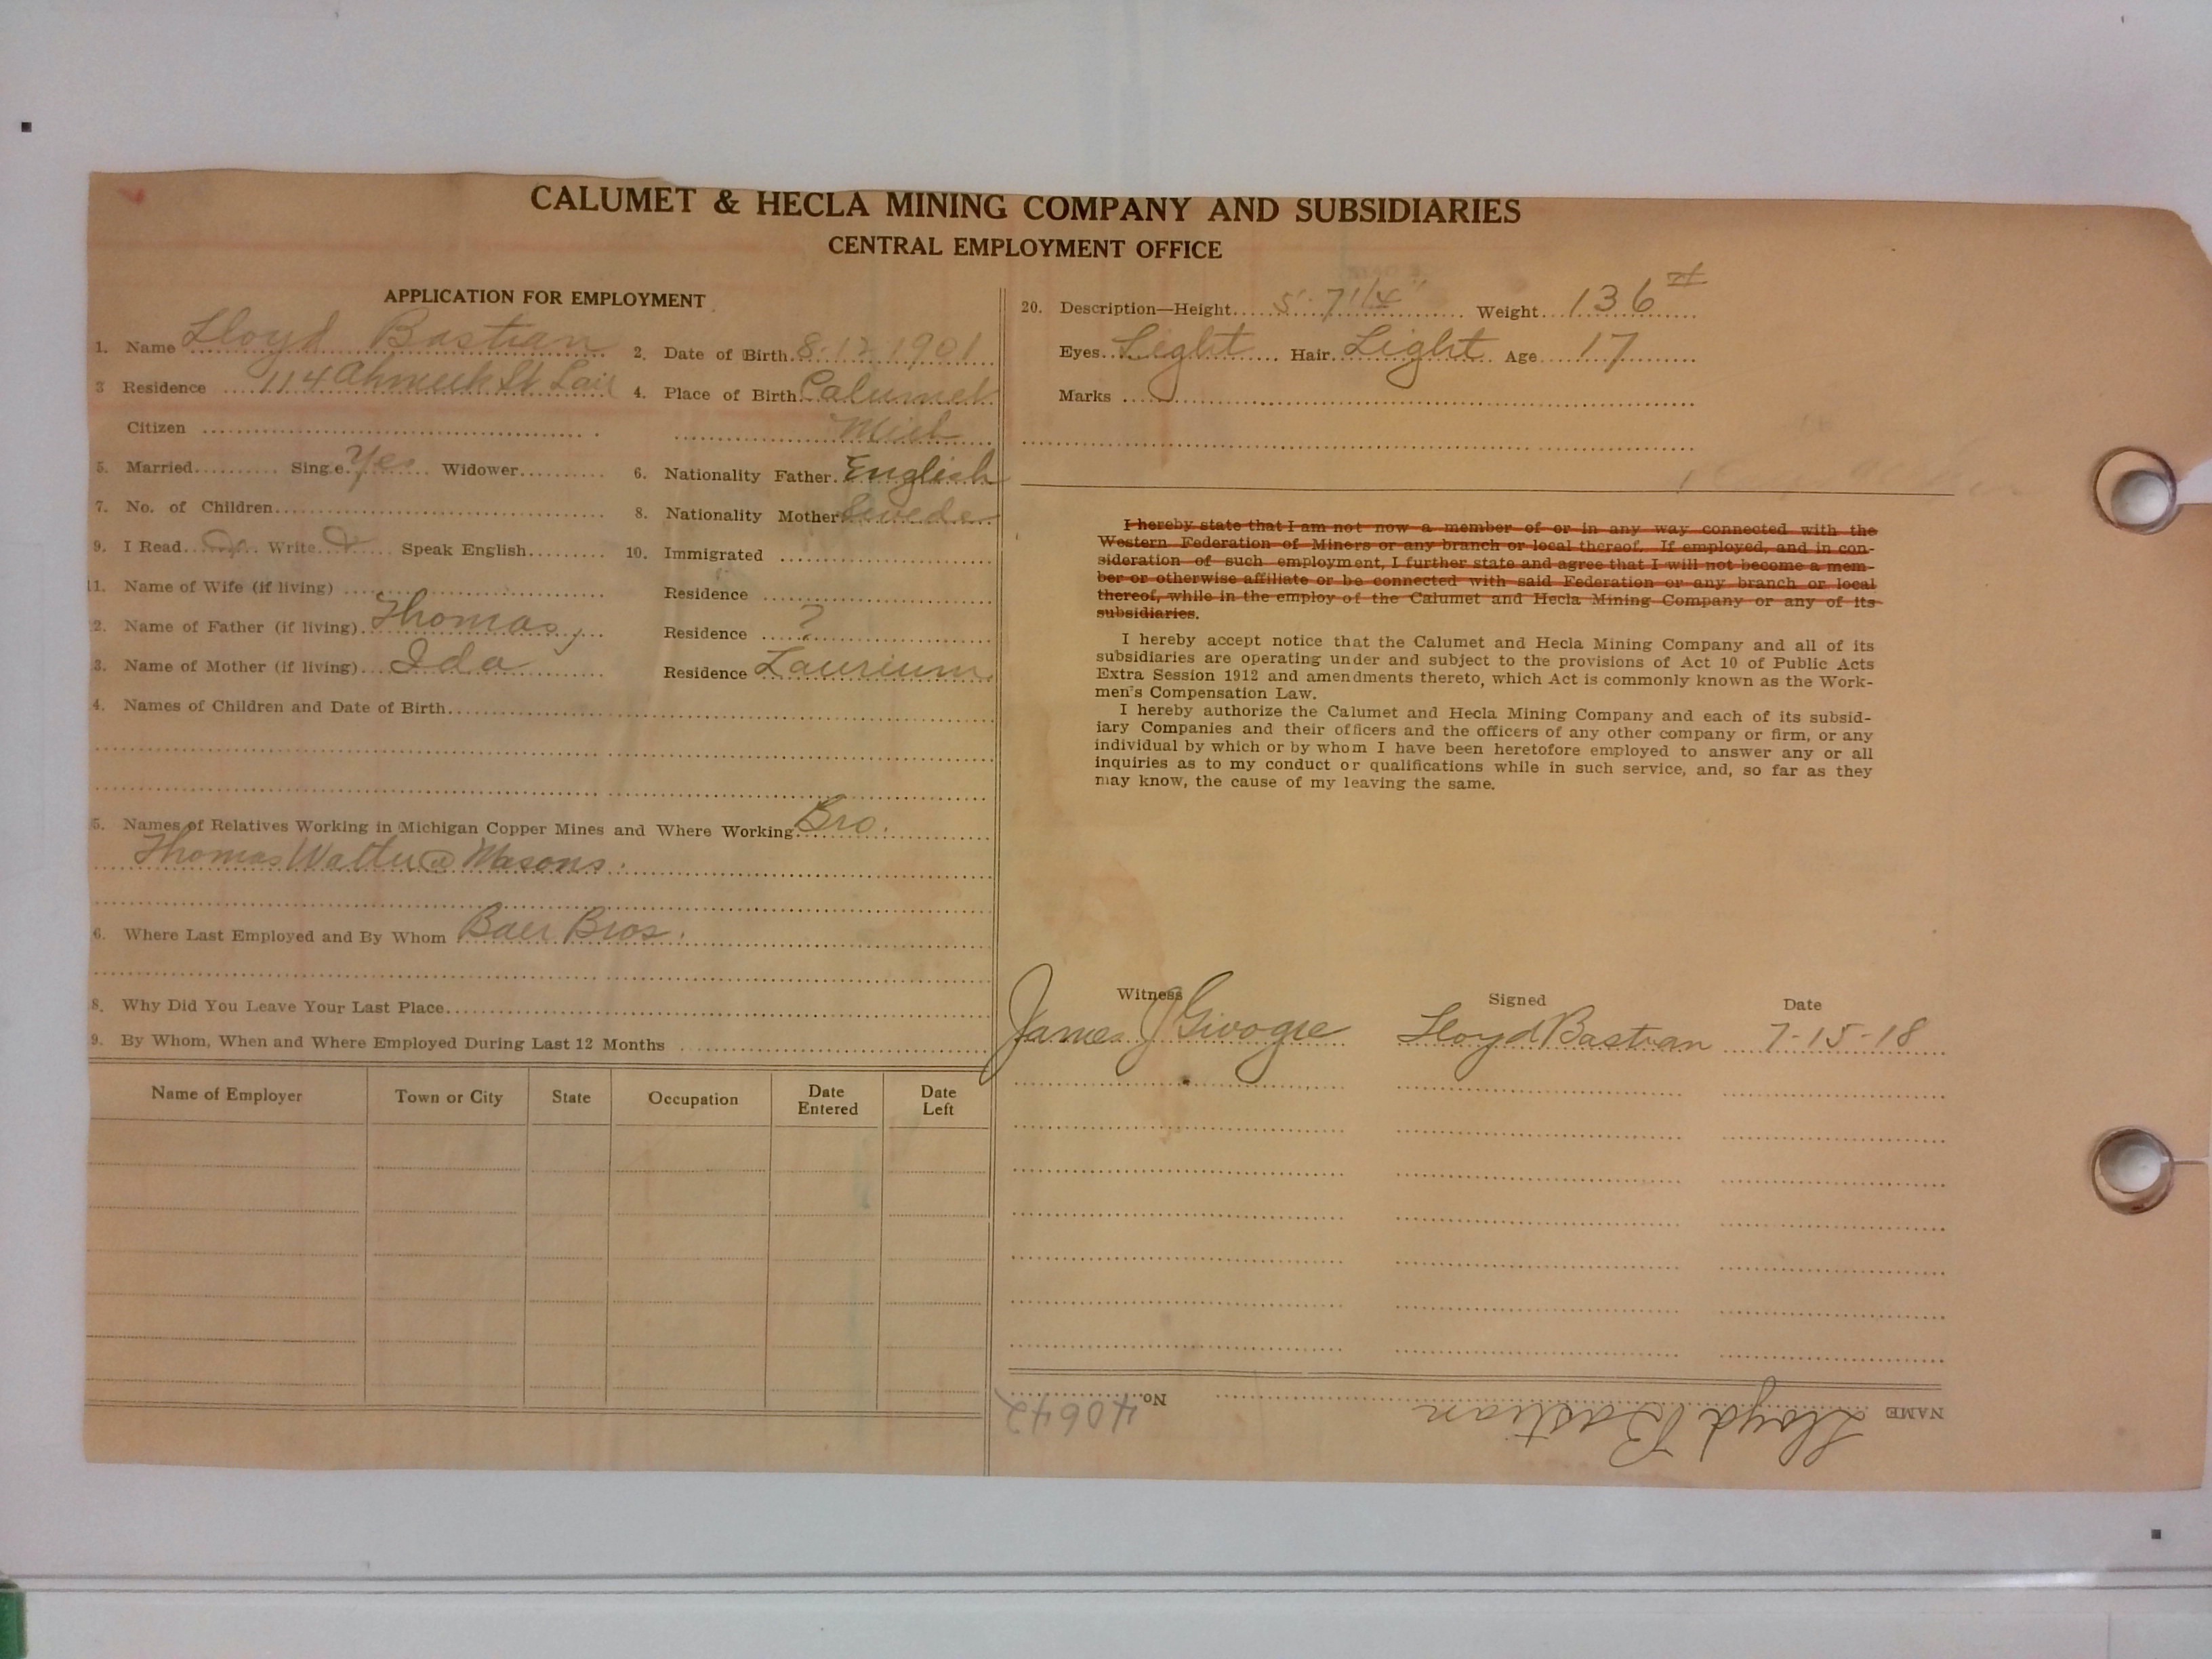 CALUMET & HECLA MINING COMPANY AND SUBSIDIARIES
CENTRAL EMPLOYMENT OFFICE
APPLICATION FOR EMPLOYMENT
1. Name Lloyd Bastian 2. Date of Birth 8-12-1901
3 Residence 114 Ahmeek St. 4. Place of Birth Calumet
Citizen Mich
5. Married Sing.e Yes Widower 6. Nationality Father English
7. No. of Children 8. Nationality Mother Swede
9. I Read Write Speak English 10. Immigrated
11. Name of Wife (if living) Residence
2. Name of Father (if living) Thomas, Residence ?
3. Name of Mother (if living) Ida Residence Laurium
4. Names of Children and Date of Birth
5. Names of Relatives Working in Michigan Copper Mines and Where Working Bro.
Thomas Walter @ Masons.
6. Where Last Employed and By Whom Baer Bros.
8. Why Did You Leave Your Last Place
9. By Whom, When and Where Employed During Last 12 Months
Name of Employer Town or City State Occupation Date Entered Date Left
20. Description—Height 5' 7 1/4" Weight 136 #
Eyes Light Hair Light Age 17
Marks
I hereby state that I am not now a member of or in any way connected with the
Western Federation of Miners or any branch or local thereof. If employed, and in con-
sideration of such employment, I further state and agree that I will not become a mem-
ber or otherwise affiliate or be connected with said Federation or any branch or local
thereof, while in the employ of the Calumet and Hecla Mining Company or any of its
subsidiaries.
I hereby accept notice that the Calumet and Hecla Mining Company and all of its
subsidiaries are operating under and subject to the provisions of Act 10 of Public Acts
Extra Session 1912 and amendments thereto, which Act is commonly known as the Work-
men's Compensation Law.
I hereby authorize the Calumet and Hecla Mining Company and each of its subsid-
iary Companies and their officers and the officers of any other company or firm, or any
individual by which or by whom I have been heretofore employed to answer any or all
inquiries as to my conduct or qualifications while in such service, and, so far as they
may know, the cause of my leaving the same.
Witness Signed Date
James J Givogre Lloyd Bastian 7-15-18
NAME Lloyd Bastian No. 40642